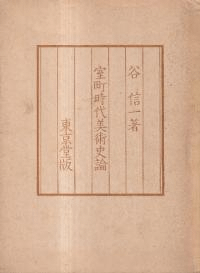 谷信一著
室町時代美術史論
東京堂版